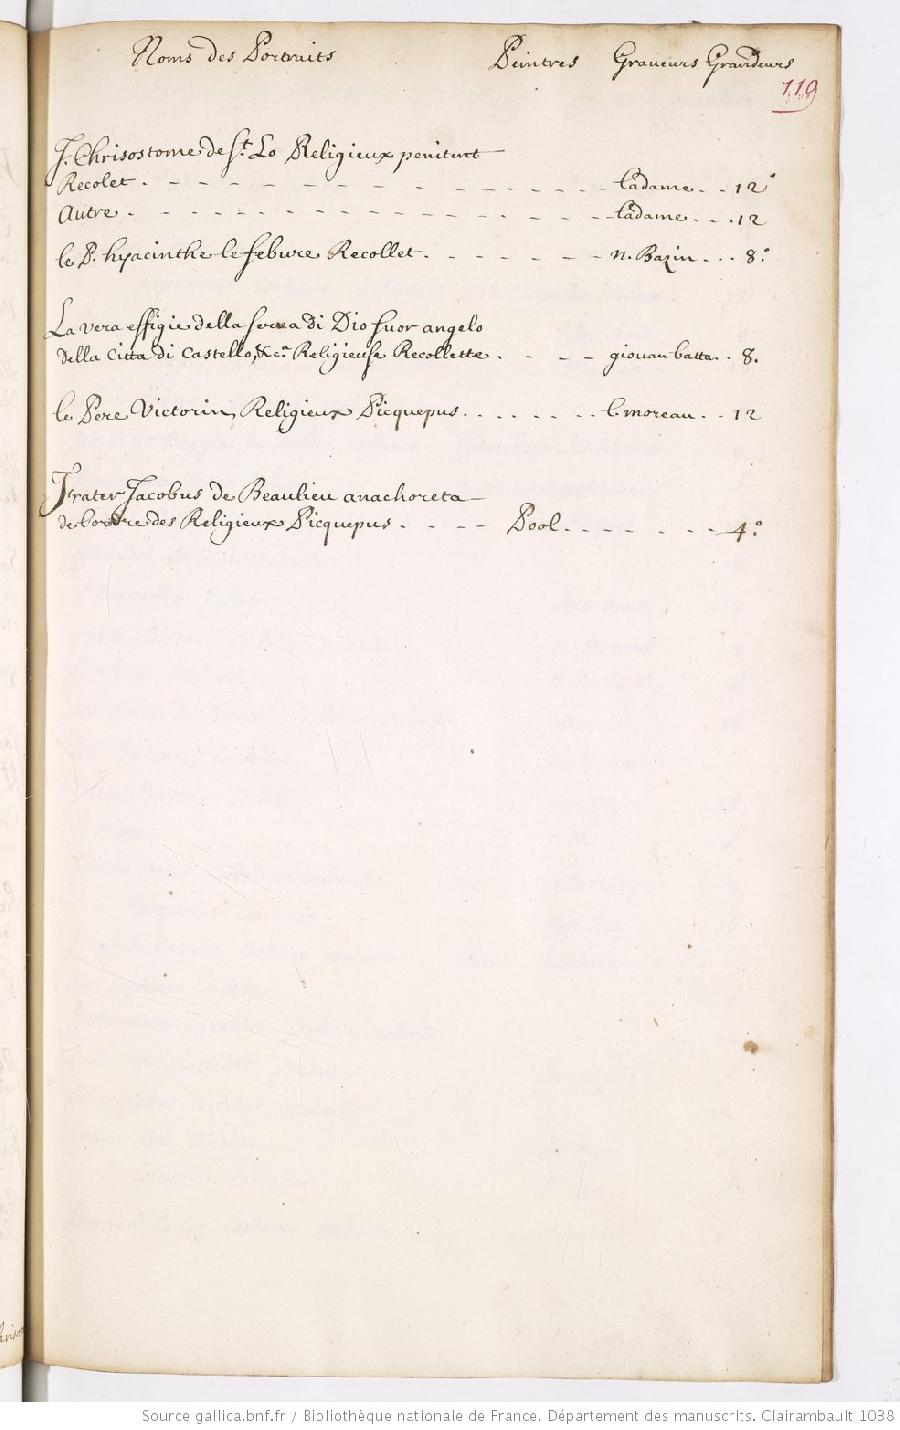 Noms des Portraits Peintres Graueurs Grandeurs
119
J. Chrisostome de St. Lo Religieux penitent
Recolet . - - - - - - - - - - - - Ladame . . 12°
Autre . - - - - - - - - - - - - - Ladame . . . 12
le P. hyacinthe lefebure Recollet . - - - - - n. Bazin . . . 8.°
La vera effigie della serua di Dio suor angelo
della Citta di Castello, &c.a Religieuse Recollette . . - - giouan batta . . 8.
le Pere Victorin, Religieux Picquepus . . . . . . . l. moreau . . 12
Frater Jacobus de Beaulieu anachoreta
de lordre des Religieux Picquepus . - - - Pool . - - - - - 4.°
Source gallica.bnf.fr / Bibliothèque nationale de France. Département des manuscrits. Clairambault 1038